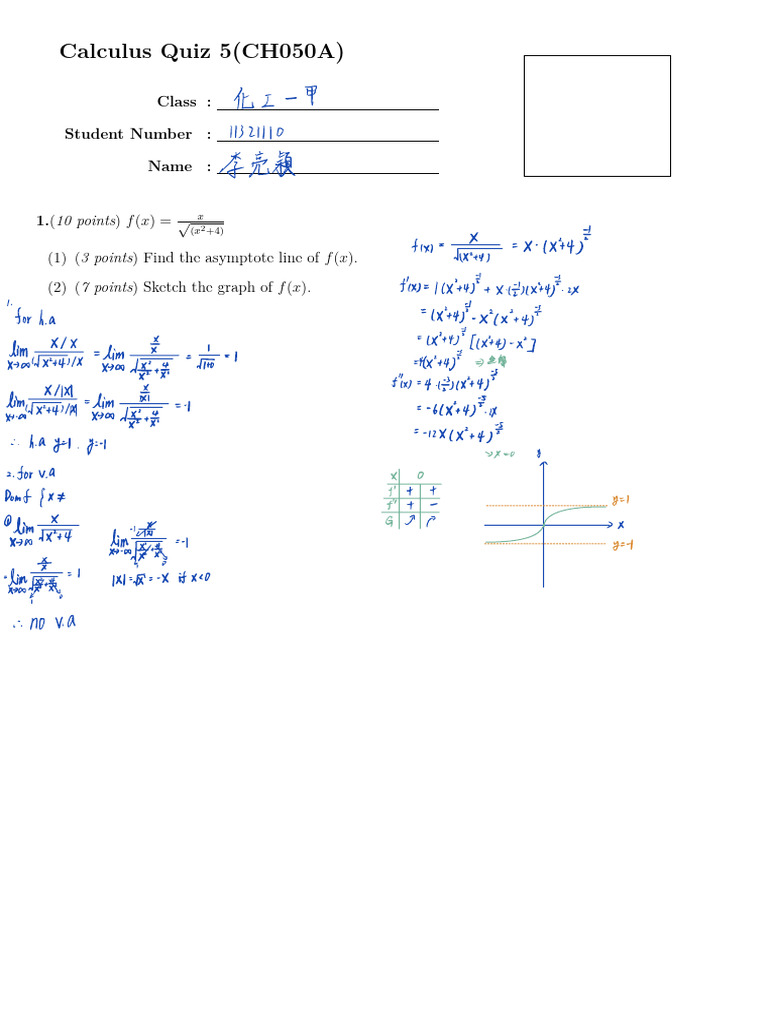 Calculus Quiz 5(CH050A)
Class : 化工一甲
Student Number : 11321110
Name : 李亮穎
1.(10 points) f(x) = x/√(x²+4)
(1) (3 points) Find the asymptote line of f(x).
(2) (7 points) Sketch the graph of f(x).
1.
for h.a
lim x→∞ (x/x)/(√(x²+4)/x) = lim x→∞ (x/x)/√(x²/x²+4/x²) = 1/√(1+0) = 1
lim x→-∞ (x/|x|)/(√(x²+4)/|x|) = lim x→∞ (x/|x|)/√(x²/x²+4/x²) = -1
∴ h.a y=1, y=-1
2. for v.a
Dom f {x≠
① lim x→∞ x/√(x²+4)
= lim x→∞ (x/x)/√(x²/x²+4/x²) = 1
∴ no v.a
lim x→-∞ (x/|x|)/√(x²/x²+4/x²) = -1
|x| = √x² = -x if x<0
f(x) = x/√(x²+4) = x·(x²+4)^(-1/2)
f'(x) = 1(x²+4)^(-1/2) + x·(-1/2)(x²+4)^(-1/2)·2x
= (x²+4)^(-1/2) - x²(x²+4)^(-1/2)
= (x²+4)^(-1/2)[(x²+4)-x²]
=4(x²+4)
f''(x) = 4·(-3/2)(x²+4)
= -6(x²+4)^(-5/2)·2x
= -12x(x²+4)^(-5/2)
→x=0
x 0
f' + +
f'' + -
G ↗
y
y=1
x
y=-1